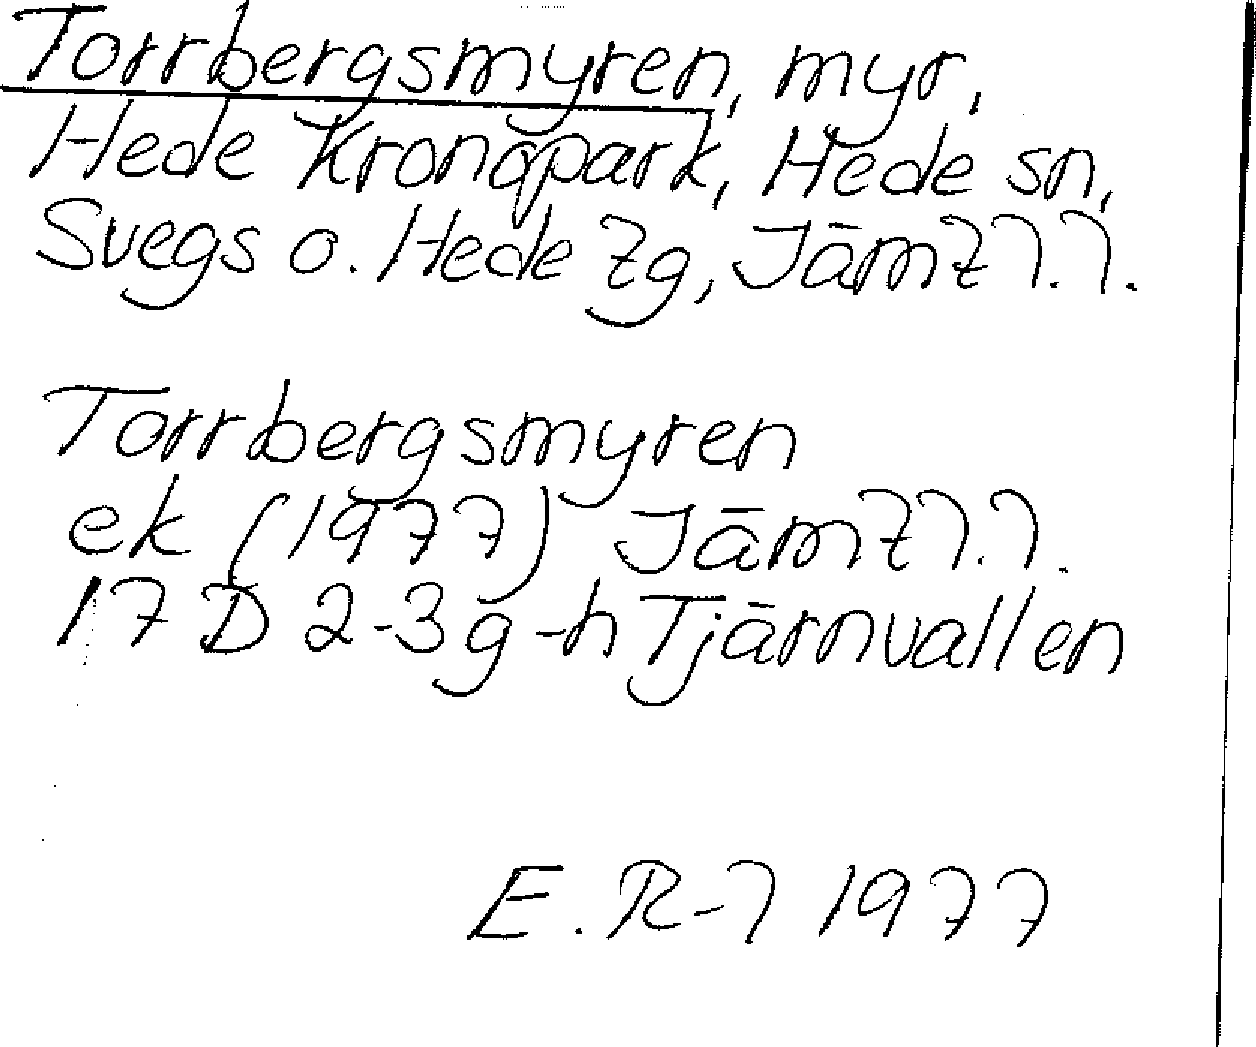 Torrbergsmyren, myr,
Hede Kronopark, Hede sn,
Svegs o. Hede tg, Jämtl.l.
Torrbergsmyren
ek (1977) Jämtl.l.
17 D 2-3g-h Tjärnvallen
E. R-l 1977